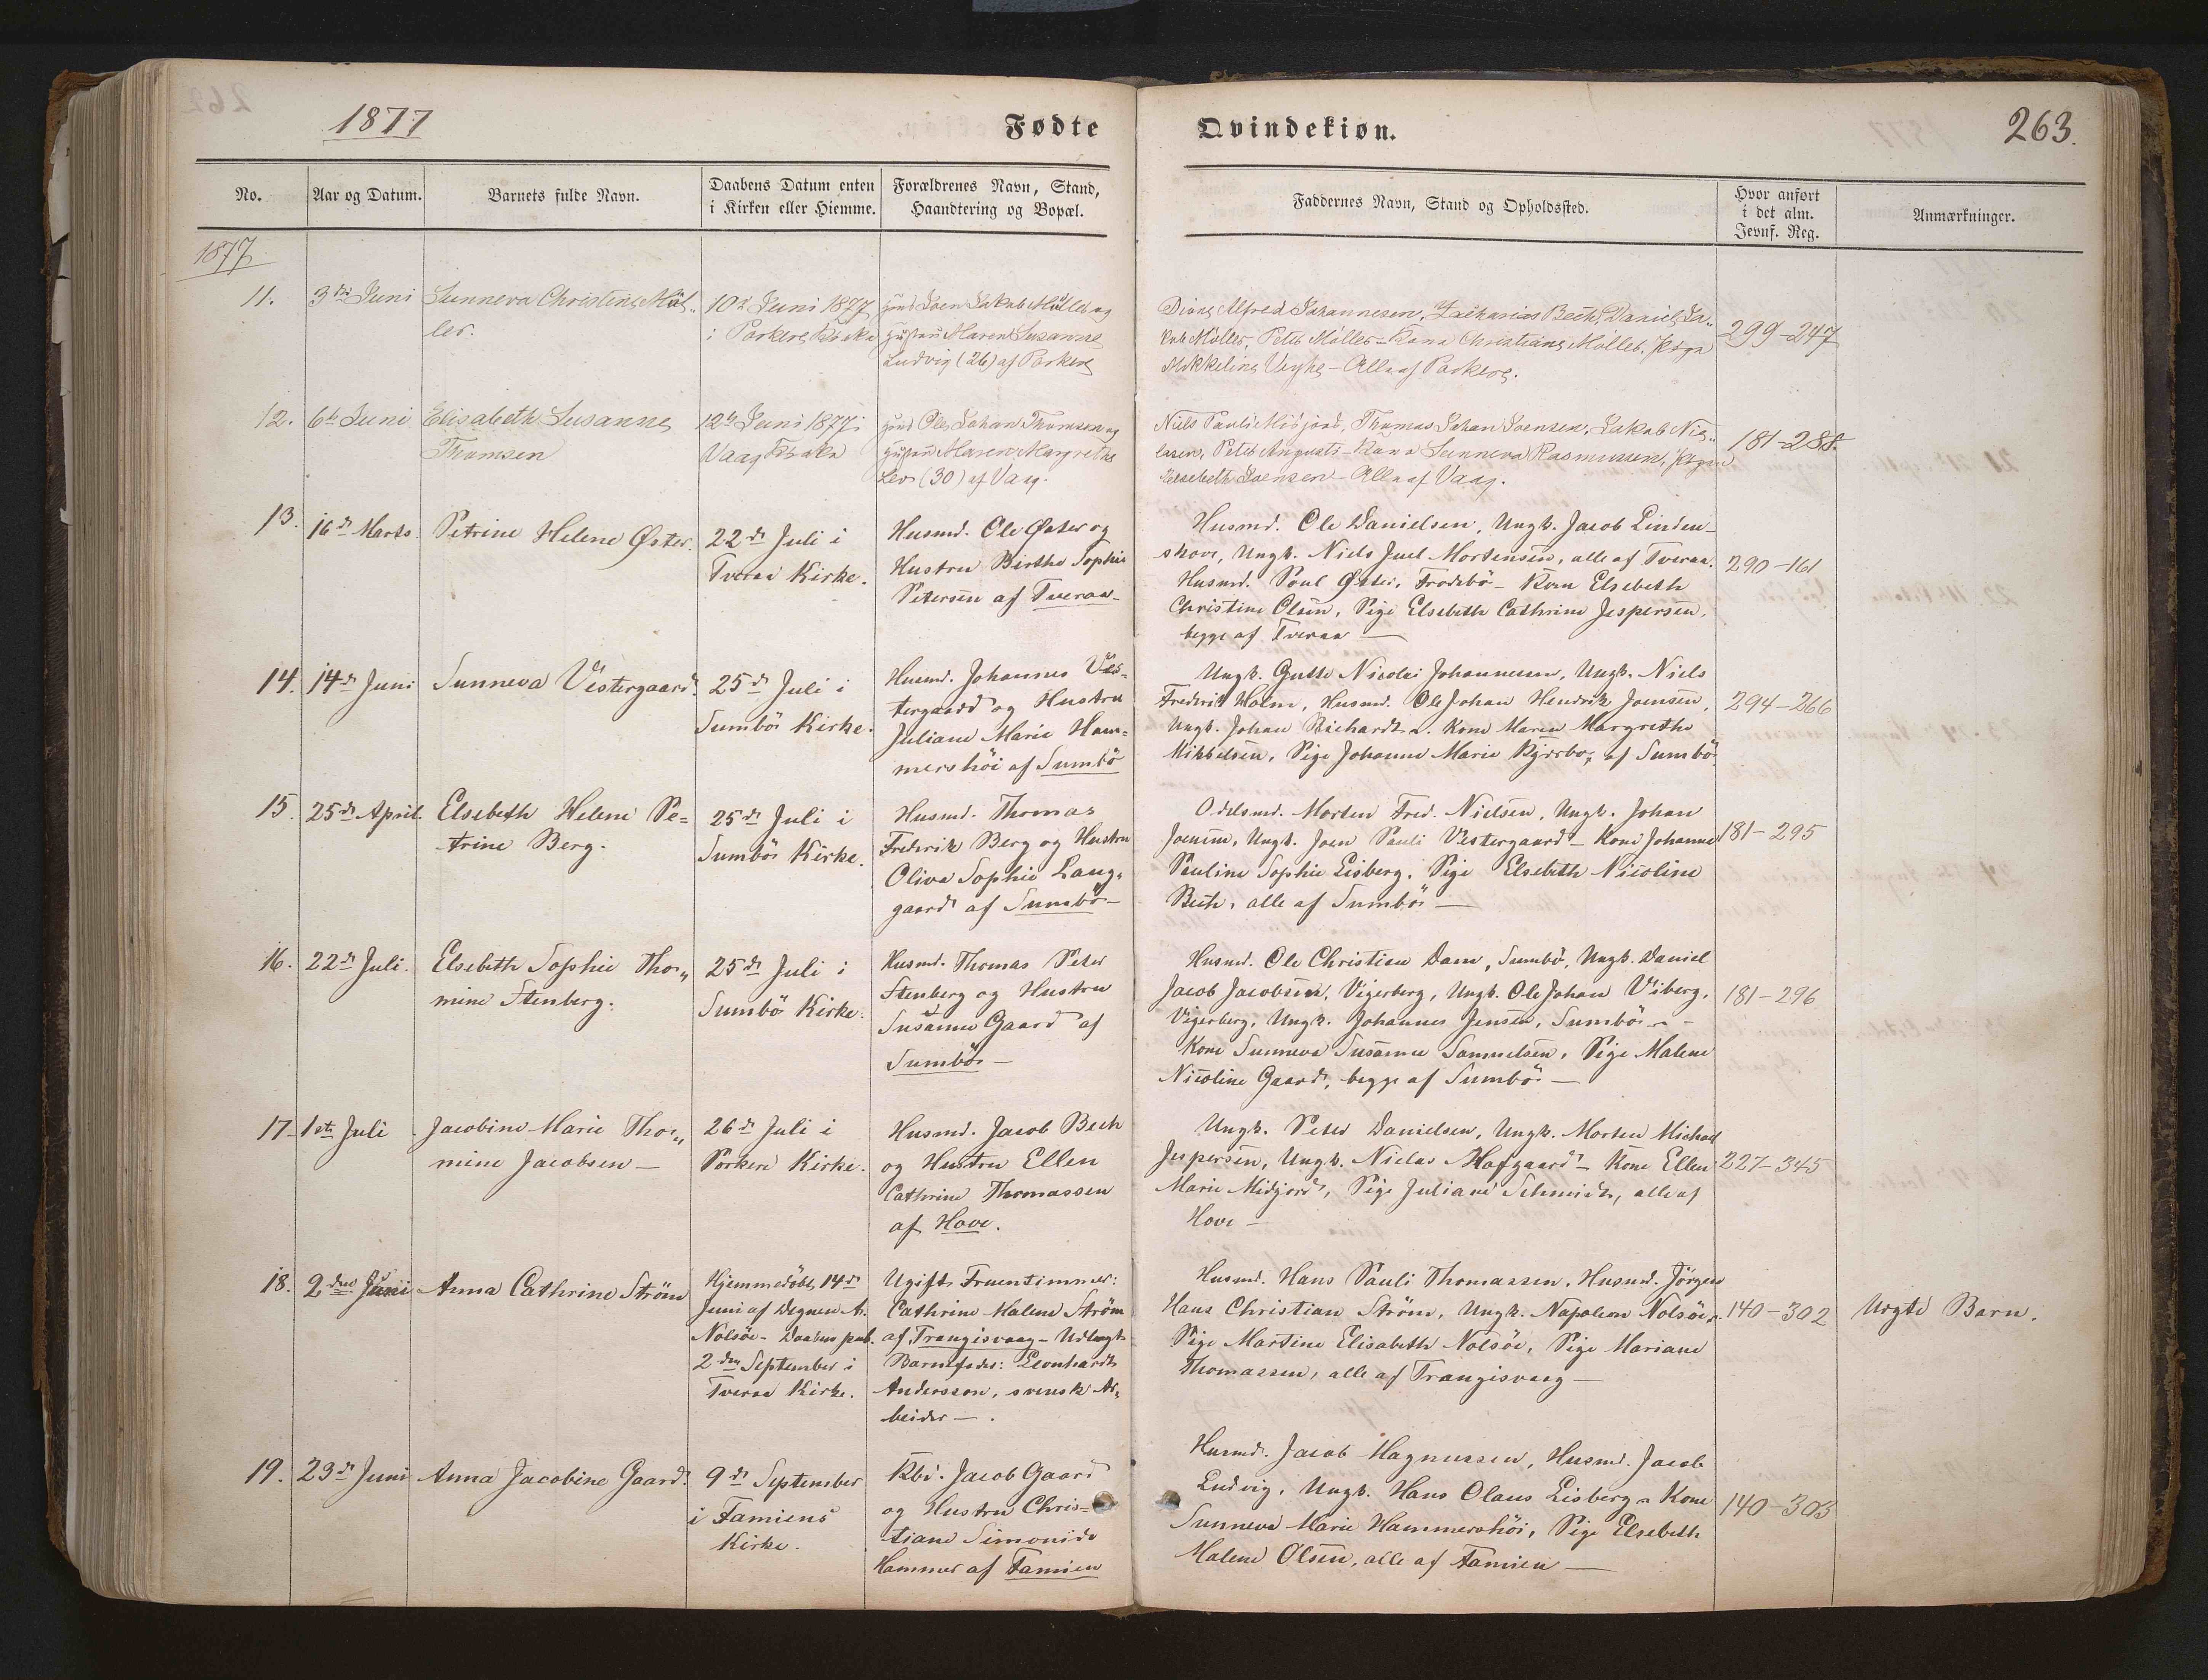 1877
Fødte
Qvindekiøn.
263.
No.
Aar og Datum.
Barnets fulde Navn.
Daabens Datum enten
i Kirken eller Hiemme.
Forældrenes Navn, Stand,
Haandtering og Bopæl.
Faddernes Navn, Stand og Opholdssted.
Hvor anført
i det alm.
Jevnf. Reg.
Anmærkninger.
1877.
11.
3die Juni
Sunneva Christine Møl„
ler.
10d Juni 1877
i Porkere Kirke
Joen Jakob Møller og
Maren Susanne
Ludvig (26) af Porkere
Alfred Johannesen, Zacharias Bech, Daniel Ja„
kob Møller, Peter Møller - Kona Christiane Møller,
Mikkeline - Alle af Porkere.
299-247
12.
6te Juni
Elisabeth Susanne
Thomsen
12te Juni 1877 i
Vaag Kirke
Ole Johan Thomsen og
Maren Margrethe
(30) af Vaag.
Niels Pauli Midjord, Thomas Johan Joensen, Jakob Nic„
lasen, Peter Augusti - Kona Sunneva Rasmussen,
Elsebeth Joensen - Alle af Vaag.
181-288.
13.
16d Marts.
Petrine Helene Øster.
22d Juli i
Tveraa Kirke.
Husmd. Ole Øster og
Hustru Birthe Sophie
Petersen af Tveraa-
Husmd. Ole Danielsen, Ungk. Jacob Linden-
skove, Ungk. Niels Juel Mortensen, alle af Tveraa.
Husmd. Poul Øster, Frodebö - Kone Elsebeth
Christine Olsen, Pige Elsebeth Cathrine Jespersen,
begge af Tveraa -
290-161
14.
14d Juni
Sunneva Vestergaard.
25d Juli i
Sumbö Kirke.
Husmd. Johannes Ves-
tergaard og Hustru
Juliane Marie Ham=
mershöi af Sumbö
Ungk. Gutte Nicolai Johannesen, Ungk. Niels
Frederik Holm, Husmd. Ole Johan Hendrik Joensen,
Ungk. Johan - Kone Maren Margrethe
Mikkelsen, Pige Johanne Marie Kjærbo, af Sumbö
294-266
15.
25d April.
Elsebeth Helene Pe=
trine Berg.
25d Juli i
Sumbö Kirke.
Husmd. Thomas
Frederik Berg og Hustru
Oliva Sophie Lang„
gaard af Sumbö-
Odelsmd. Morten Fred. Nielsen, Ungk. Johan
Joensen, Ungk. Joen Pauli Vestergaard - Kone Johanne
Pauline Sophie Eisberg, Pige Elsebeth Nicoline
Bech, alle af Sumbö -
181-295
16.
22d Juli.
Elsebeth Sophie Tho„
mine Stenberg.
25d Juli i
Sumbö Kirke.
Husmd. Thomas Peter
Stenberg og Hustru
Susanne Gaard af
Sumbö -
Husmd. Ole Christian Dam, Sumbö, Ungk. Daniel
Jacob Jacobsen, Vigerberg, Ungk. Ole Johan Viberg,
Vigerberg, Ungk. Johannes Jensen, Sumbö -
Kone Sunneva Susanne Samuelsen, Pige Malene
Nicoline Gaard, begge af Sumbö -
181-296
17.
1ste Juli
Jacobine Marie Tho„
mine Jacobsen -
26d Juli i
Porkere Kirke.
Husmd. Jacob Bech
og Hustru Ellen
Cathrine Thomassen
af Hove.
Ungk. Peter Danielsen, Ungk. Morten Michael
Jespersen, Ungk. Niclas Hofgaard - Kone Ellen
Marie Midjord, Pige Juliane Schmidt, alle af
Hove -
227-345
18.
2den Juni
Anna Cathrine Ström
Hjemmedöbt 14d
Juni af Degnen A.
Nolsöe - Daaben pub.
2den September i
Tveraa Kirke.
Ugift Fruentimmer:
Cathrine Malene Ström
af Trangisvaag - Udlagt
Barnefader: Leonhardt
Andersson, svensk Ar„
beider -.
Husmd. Hans Pauli Thomassen, Husmd. Jörgen
Hans Christian Ström, Ungk. Napoleon Nolsöe -
Pige Martine Elisabeth Nolsöe, Pige Mariane
Thomassen, alle af Trangisvaag -
140-302
Uægte Barn.
19.
23d Juni
Anna Jacobine Gaard.
9d September
i Famiens
Kirke.
Kbd. Jacob Gaard
og Hustru Chris-
tiane Simonide
Hammer af Famien
Husmd. Jacob Magnussen, Husmd. Jacob
Ludvig, Ungk. Hans Olaus Eisberg - Kone
Sunneva Marie Hammershöi, Pige Elsebeth
Malene Olsen, alle af Famien -
140-303